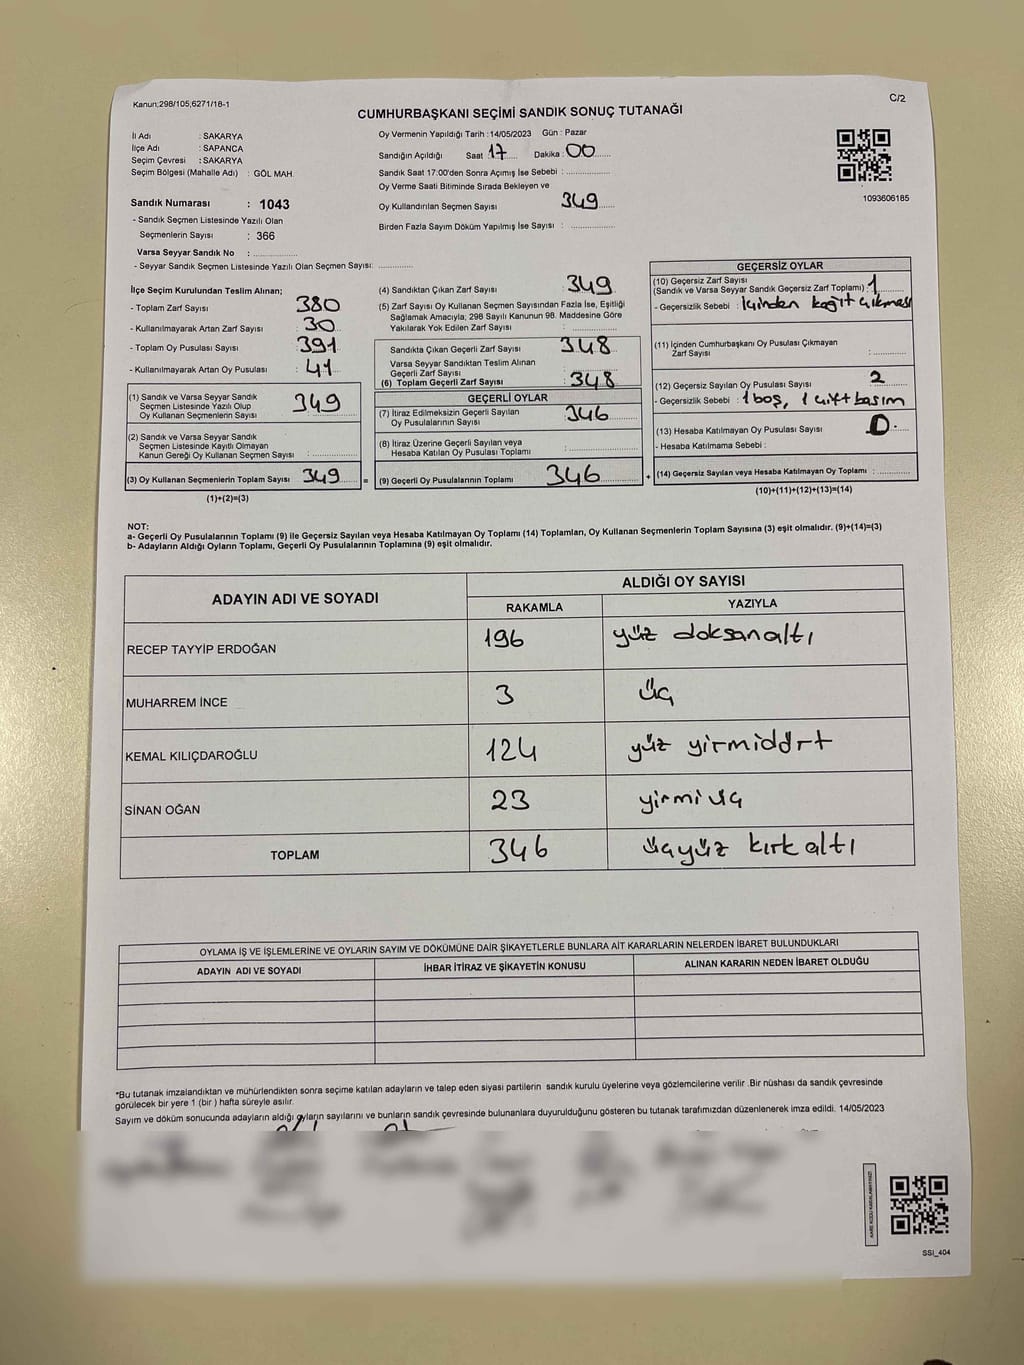 Kanun:298/105,6271/18-1
C/2
CUMHURBAŞKANI SEÇİMİ SANDIK SONUÇ TUTANAĞI
İl Adı : SAKARYA
İlçe Adı : SAPANCA
Seçim Çevresi : SAKARYA
Seçim Bölgesi (Mahalle Adı) : GÖL MAH.
Sandık Numarası : 1043
- Sandık Seçmen Listesinde Yazılı Olan
Seçmenlerin Sayısı : 366
Varsa Seyyar Sandık No : ..............
- Seyyar Sandık Seçmen Listesinde Yazılı Olan Seçmen Sayısı: ............
Oy Vermenin Yapıldığı Tarih :14/05/2023 Gün : Pazar
Sandığın Açıldığı Saat : 17 Dakika : 00
Sandık Saat 17:00'den Sonra Açımış İse Sebebi : ..............
Oy Verme Saati Bitiminde Sırada Bekleyen ve
Oy Kullandırılan Seçmen Sayısı 349
Birden Fazla Sayım Döküm Yapılmış İse Sayısı : ..............
1093606185
İlçe Seçim Kurulundan Teslim Alınan;
- Toplam Zarf Sayısı : 380
- Kullanılmayarak Artan Zarf Sayısı : 30
- Toplam Oy Pusulası Sayısı : 391
- Kullanılmayarak Artan Oy Pusulası : 41
(1) Sandık ve Varsa Seyyar Sandık
Seçmen Listesinde Yazılı Olup
Oy Kullanan Seçmenlerin Sayısı : 349
(2) Sandık ve Varsa Seyyar Sandık
Seçmen Listesinde Kayıtlı Olmayan
Kanun Gereği Oy Kullanan Seçmen Sayısı : ..............
(3) Oy Kullanan Seçmenlerin Toplam Sayısı : 349 =
(1)+(2)=(3)
(4) Sandıktan Çıkan Zarf Sayısı : 349
(5) Zarf Sayısı Oy Kullanan Seçmen Sayısından Fazla İse, Eşitliği
Sağlamak Amacıyla; 298 Sayılı Kanunun 98. Maddesine Göre
Yakılarak Yok Edilen Zarf Sayısı : ..............
Sandıkta Çıkan Geçerli Zarf Sayısı : 348
Varsa Seyyar Sandıktan Teslim Alınan
Geçerli Zarf Sayısı : ..............
(6) Toplam Geçerli Zarf Sayısı : 348
GEÇERLİ OYLAR
(7) İtiraz Edilmeksizin Geçerli Sayılan
Oy Pusulalarının Sayısı : 346
(8) İtiraz Üzerine Geçerli Sayılan veya
Hesaba Katılan Oy Pusulası Toplamı : ..............
(9) Geçerli Oy Pusulalarının Toplamı : 346 +
GEÇERSİZ OYLAR
(10) Geçersiz Zarf Sayısı
(Sandık ve Varsa Seyyar Sandık Geçersiz Zarf Toplamı) : 1
- Geçersizlik Sebebi : İçinden kağıt çıkması
(11) İçinden Cumhurbaşkanı Oy Pusulası Çıkmayan
Zarf Sayısı : ..............
(12) Geçersiz Sayılan Oy Pusulası Sayısı : 2
- Geçersizlik Sebebi : 1 boş, 1 çift basım
(13) Hesaba Katılmayan Oy Pusulası Sayısı : 0
- Hesaba Katılmama Sebebi :
(14) Geçersiz Sayılan veya Hesaba Katılmayan Oy Toplamı : ..............
(10)+(11)+(12)+(13)=(14)
NOT:
a- Geçerli Oy Pusulalarının Toplamı (9) ile Geçersiz Sayılan veya Hesaba Katılmayan Oy Toplamı (14) Toplamları, Oy Kullanan Seçmenlerin Toplam Sayısına (3) eşit olmalıdır. (9)+(14)=(3)
b- Adayların Aldığı Oyların Toplamı, Geçerli Oy Pusulalarının Toplamına (9) eşit olmalıdır.
ADAYIN ADI VE SOYADI ALDIĞI OY SAYISI
RAKAMLA YAZIYLA
RECEP TAYYİP ERDOĞAN 196 yüz doksanaltı
MUHARREM İNCE 3 üç
KEMAL KILIÇDAROĞLU 124 yüz yirmidört
SİNAN OĞAN 23 yirmi üç
TOPLAM 346 üçyüz kırkaltı
OYLAMA İŞ VE İŞLEMLERİNE VE OYLARIN SAYIM VE DÖKÜMÜNE DAİR ŞİKAYETLERLE BUNLARA AİT KARARLARIN NELERDEN İBARET BULUNDUKLARI
ADAYIN ADI VE SOYADI İHBAR İTİRAZ VE ŞİKAYETİN KONUSU ALINAN KARARIN NEDEN İBARET OLDUĞU
*Bu tutanak imzalandıktan ve mühürlendikten sonra seçime katılan adayların ve talep eden siyasi partilerin sandık kurulu üyelerine veya gözlemcilerine verilir .Bir nüshası da sandık çevresinde
görülecek bir yere 1 (bir ) hafta süreyle asılır.
Sayım ve döküm sonucunda adayların aldığı oyların sayılarını ve bunların sandık çevresinde bulunanlara duyurulduğunu gösteren bu tutanak tarafımızdan düzenlenerek imza edildi. 14/05/2023
SSI_404